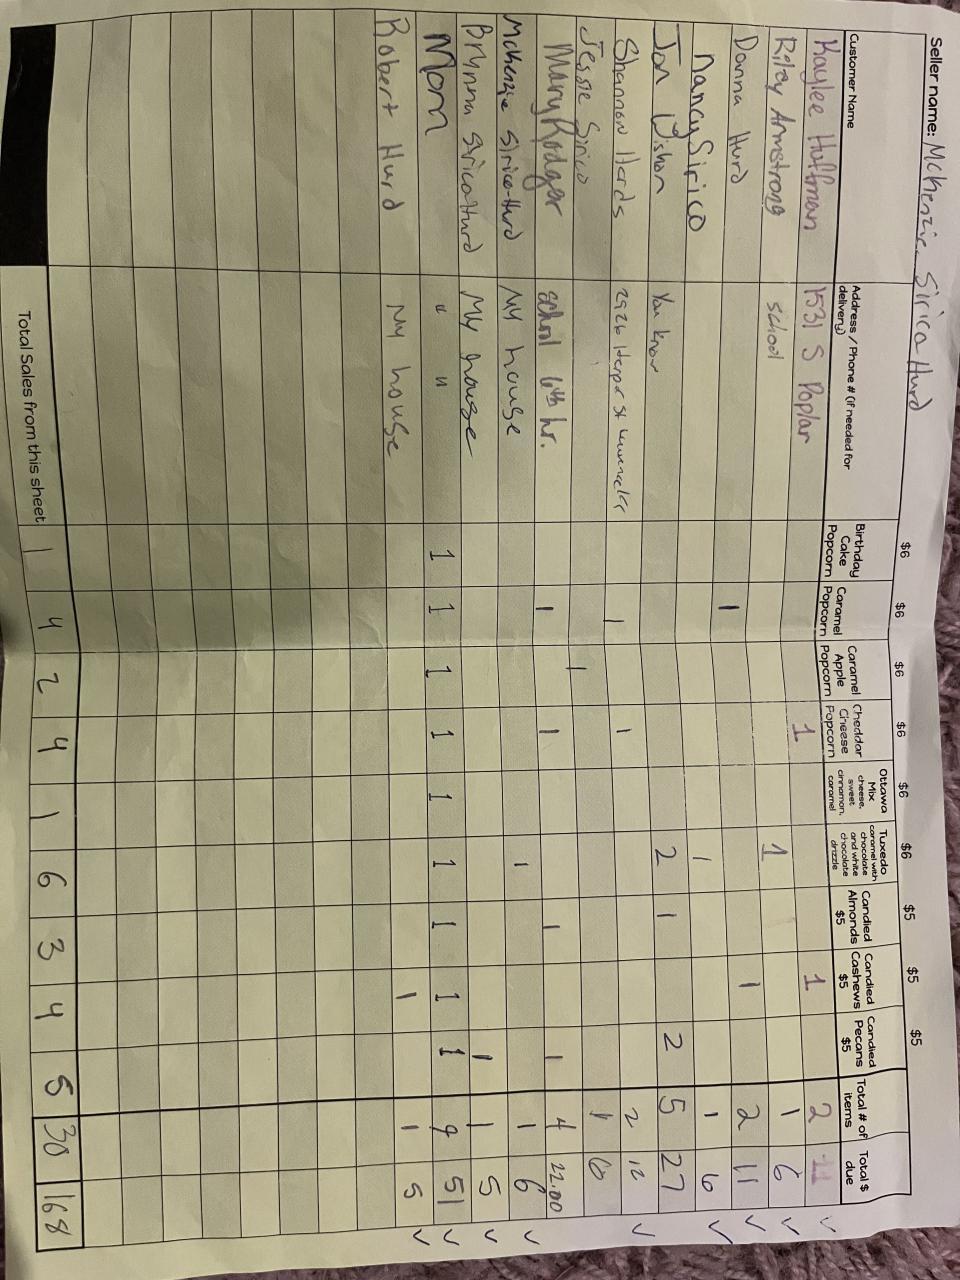 Seller name: McKenzie Sirica Hurd
$6 $6 $6 $6 $6 $6 $5 $5 $5
Customer Name Address / Phone # (if needed for delivery) Birthday Cake Popcorn Caramel Popcorn Caramel Apple Popcorn Cheddar Cheese Popcorn Ottawa Mix cheese, sweet cinnamon, caramel Tuxedo caramel with chocolate and white chocolate drizzle Candied Almonds $5 Candied Cashews $5 Candied Pecans $5 Total # of items Total $ due
Kaylee Huffman 1531 S Poplar 1 1 2 11 ✓
Riley Armstrong school 1 1 6 ✓
Donna Hurd 1 1 2 11 ✓
Nancy Sirico 1 1 6 ✓
Jon Dishon You know 2 1 2 5 27
Shannon Herds 2926 St 1 1 2 12 ✓
Jessie Sirico 1 1 6
Mary Rodger school 6th hr. 1 1 1 1 4 22.00
McKenzie Sirica-Hurd My house 1 1 6 ✓
Brynna Sirica Hurd My house 1 1 5 ✓
Mom " " 1 1 1 1 1 1 1 1 1 9 51 ✓
Robert Hurd My house 1 1 5 ✓
Total Sales from this sheet 1 4 2 4 1 6 3 4 5 30 168